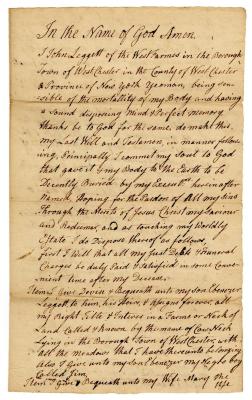 In the Name of God Amen.
I John Leggett of the West Farmes in the Borough
Town of West Chester in the County of West Chester
& Province of New York Yeoman, being sen-
sible of the mortallity of my Body and having
a Sound disposing mind & Perfect memory
thanks be to God for the same, do make this
my Last Will and Testamen, in manner follow-
ing, Principally I commit my Soul to God
that gave it & my Body to the Earth to be
Decently Buried by my Execut.rs hereinafter
Named, Hoping for the Pardon of All my sins
Through the Merits of Jesus Christ my Saviour
and Redeemer, and as touching my Worldly
Estate I do Dispose thereof as follows,
First I Will that all my Just Debts & Funeral
Charges be duly Paid & Satisfied in some Conve-
nient Time after my Decease.
Item I Give Devise & Bequeath unto my Son Ebenezer
Leggett to him, his Heirs, & Assigns forever, all
my Right, Title & Interest in a Farm or Neck of
Land Called & Known by the name of Cow Neck
Lying in the Borough Town of West Chester, with
all the Meadows that I have thereunto belonging
Also I Give unto my Son Ebenezer my Neg.ro boy
Called Jim.
Item I Give & Bequeath unto my Wife Mary the